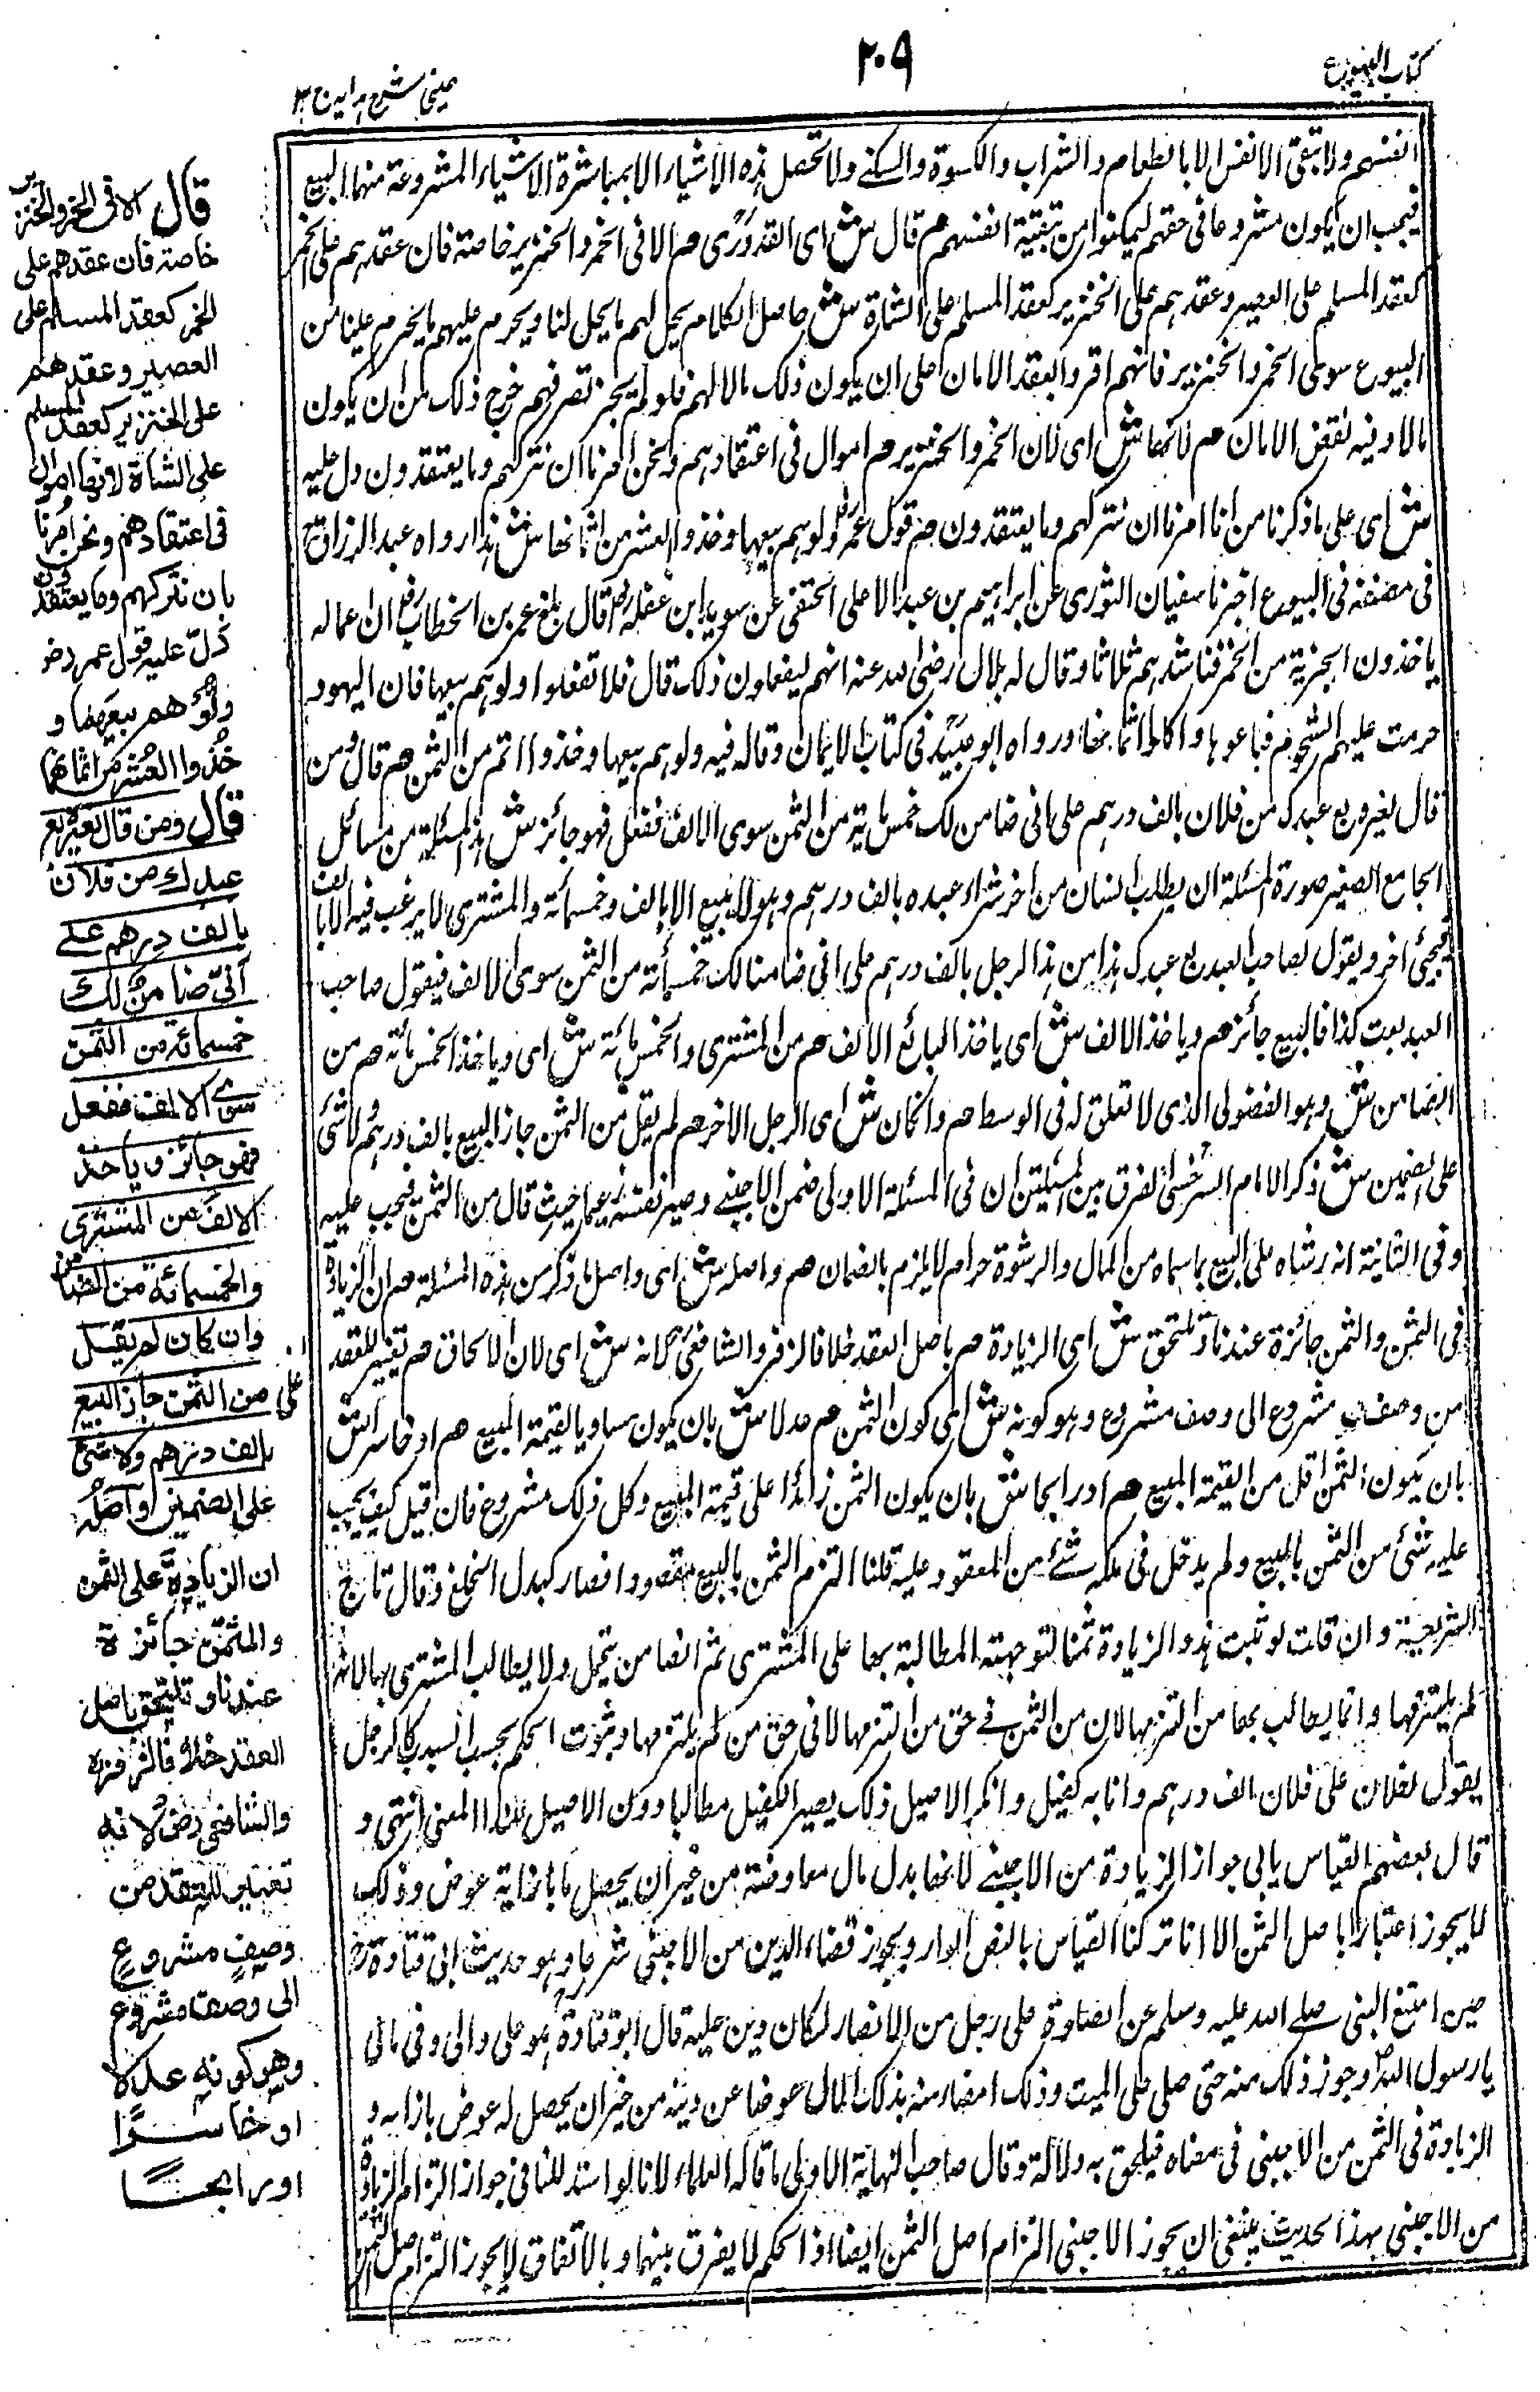 كتاب البيوع
٢٠٩
عينى شرح هداية ج ٣
انفسهم ولا تبقى الانفس الا بالطعام والشراب والكسوة والسكنے ولا تحصل هذه الاشياء الا بمباشرة الاشياء المشروعة منها البيع
فيجب ان يكون مشروعا فى حقهم ليمكنوا من تبقية انفسهم هم قال ش اى القدورى هم الا فى الخمر والخنزير خاصة فان عقدهم على الخمر
كعقد المسلم على العصير وعقدهم على الخنزير كعقد المسلم على الشاة ش حاصل الكلام يحل لهم ما يحل لنا ويحرم عليهم ما يحرم علينا من
البيوع سوى الخمر والخنزير فانهم اقروا بعقد الامان على ان يكون ذلك مالا لهم فلو لم يجز تصرفهم خرج ذلك من ان يكون
مالا وفيه نقض الامان هم لانها ش اى لان الخمر والخنزير هم اموال فى اعتقادهم ونحن امرنا ان نتركهم وما يعتقدون دل عليه
ش اى على ما ذكرنا من انا امرنا ان نتركهم وما يعتقدون هم قول عمر رض ولوهم بيعها وخذوا العشر من اثمانها ش هذا رواه عبد الرزاق رح
فى مصنفه فى البيوع اخبرنا سفيان الثورى عن ابراهيم بن عبد الاعلى الحنفى عن سويد ابن غفلة رض قال بلغ عمر بن الخطاب رض ان عماله
ياخذون الجزية من الخمر فناشدهم ثلاثا وقال له بلال رضى الله عنه انهم ليفعلون ذلك قال فلا تفعلوا ولوهم بيعها فان اليهود
حرمت عليهم الشحوم فباعوها واكلوا اثمانها ورواه ابو عبيد فى كتاب الايمان وقال فيه ولوهم بيعها وخذوا انتم من الثمن هم قال ومن
قال لغيره بع عبدك من فلان بالف درهم على انى ضامن لك خمسمائة من الثمن سوى الالف ففعل فهو جائز ش هذه المسئلة من مسائل
الجامع الصغير صورة المسئلة ان يطلب انسان من اخر شراء عبده بالف درهم وهو لا يبيع الا بالف وخمسمائة والمشترى لا يرغب فيه الا بالف
فيجئ اخر ويقول لصاحب العبد بع عبدك هذا من هذا الرجل بالف درهم على انى ضامنا لك خمسمائة من الثمن سوى الالف فيقول صاحب
العبد بعت كذا فالبيع جائز هم وياخذ الالف ش اى ياخذ البائع الالف هم من المشترى والخمسمائة ش اى وياخذ الخمسمائة هم من
الضامن ش وهو الفضولى الذى لا تعلق له فى الوسط هم وان كان ش اى الرجل الاخر هم لم يقل من الثمن جاز البيع بالف درهم ولا شئ
على الضمين ش ذكر الامام السرخسى الفرق بين المسئلتين ان فى المسئلة الاولى ضمن الاجنبے وصير نفسه زعيما حيث قال من الثمن فيجب عليه
وفى الثانية انه رشاه على البيع بما سماه من المال والرشوة حرام لا يلزم بالضمان هم واصله ش اى واصل ما ذكر من هذه المسئلة هم ان الزيادة
فى الثمن والثمن جائزة عندنا وتلتحق ش اى الزيادة هم باصل العقد خلافا لزفر والشافعى رح لانه ش اى لان الالحاق هم تغيير للعقد
من وصف مشروع الى وصف مشروع وهو كونه ش اى كون الثمن هم عدلا ش بان يكون مساويا لقيمة المبيع هم او خاسرا ش
بان يكون الثمن اقل من القيمة المبيع هم او رابحا ش بان يكون الثمن زائدا على قيمة المبيع وكل ذلك مشروع فان قيل كيف يجب
عليه شئ من الثمن بالبيع ولم يدخل فى ملكه شئ من المعقود عليه قلنا التزم الثمن بالبيع مقصودا فصار كبدل الخلع وقال تاج
الشريعة وان قلت لو ثبت هذه الزيادة ثمنا لتوجهت المطالبة بها على المشترى ثم الضامن يتحمل ولا يطالب المشترى بها لانه
لم يلتزمها وانما يطالب بها من التزمها لان من الثمن فے حق من التزمها لا فى حق من لم يلتزمها وثبوت الحكم بحسب السبب كالرجل
يقول لفلان على فلان الف درهم وانا به كفيل وانكر الاصيل ذلك يصير الكفيل مطالبا دون الاصيل لهذا المعنى انتهى و
قال بعضهم القياس يابى جواز الزيادة من الاجنبے لانها بدل مال معاوضة من غير ان يحصل ما بازائه عوض وذلك
لا يجوز اعتبارا باصل الثمن الا انا تركنا القياس بالنص الوارد بجواز قضاء الدين من الاجنبى شرعا وهو حديث ابى قتادة رض
حين امتنع النبى صلے الله عليه وسلم عن الصلوة على رجل من الانصار لمكان دين عليه قال ابو قتادة هو على والى وفى مالى
يا رسول الله وجوز ذلك منه حتى صلى على الميت وذلك امضاء منه بذلك المال عوضا عن دينه من غير ان يحصل له عوض بازائه و
الزيادة فى الثمن من الاجنبى فى معناه فيلحق به دلالة وقال صاحب النهاية الاولى ما قاله العلماء لانا لو استدللنا فى جواز التزام الزيادة
من الاجنبى بهذا الحديث ينبغى ان يجوز الاجنبى التزام اصل الثمن ايضا اذ الحكم لا يفرق بينهما وبالاتفاق لا يجوز التزام اصل الثمن
قال الا فى الخمر والخنزير
خاصة فان عقدهم على
الخمر كعقد المسلم على
العصير وعقدهم
على الخنزير كعقد المسلم
على الشاة لانها اموال
فى اعتقادهم ونحن امرنا
بان نتركهم وما يعتقدون
دل عليه قول عمر رض
ولوهم بيعها و
خذوا العشر من اثمانها
قال ومن قال لغيره بع
عبدك من فلان
بالف درهم على
انى ضامن لك
خمسمائة من الثمن
سوى الالف ففعل
فهو جائز وياخذ
الالف من المشترى
والخمسمائة من الضامن
وان كان لم يقل
من الثمن جاز البيع
بالف درهم ولا شئ
على الضمين واصله
ان الزيادة على الثمن
والمثمن جائزة
عندنا وتلتحق باصل
العقد خلافا لزفر
والشافعى رض لانه
تغيير للعقد من
وصف مشروع
الى وصف مشروع
وهو كونه عدلا
او خاسرا
او رابحا